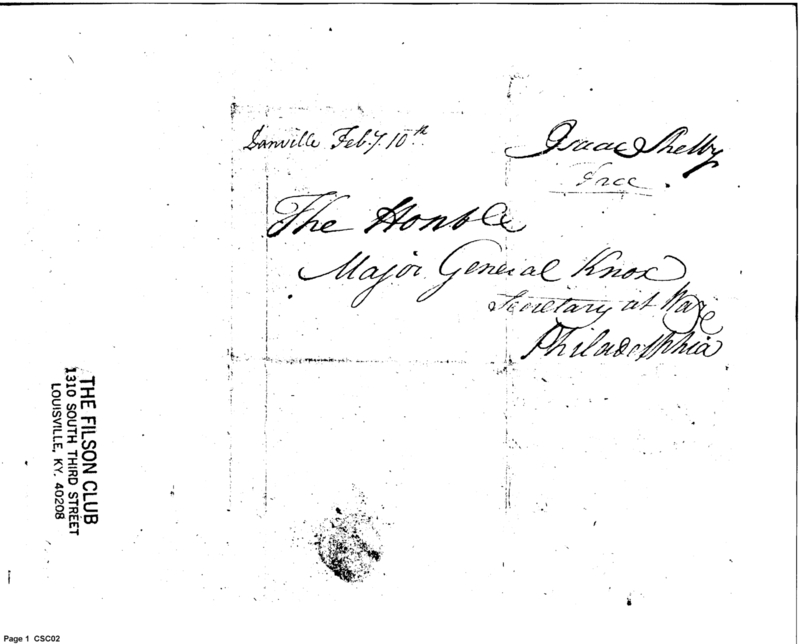 Danville Feb.y. 10th
Isaac Shelby
Free
The Honble
Major General Knox
Secretary at Warr
Philadelphia
THE FILSON CLUB
1310 SOUTH THIRD STREET
LOUISVILLE, KY. 40208
Page 1 CSC02